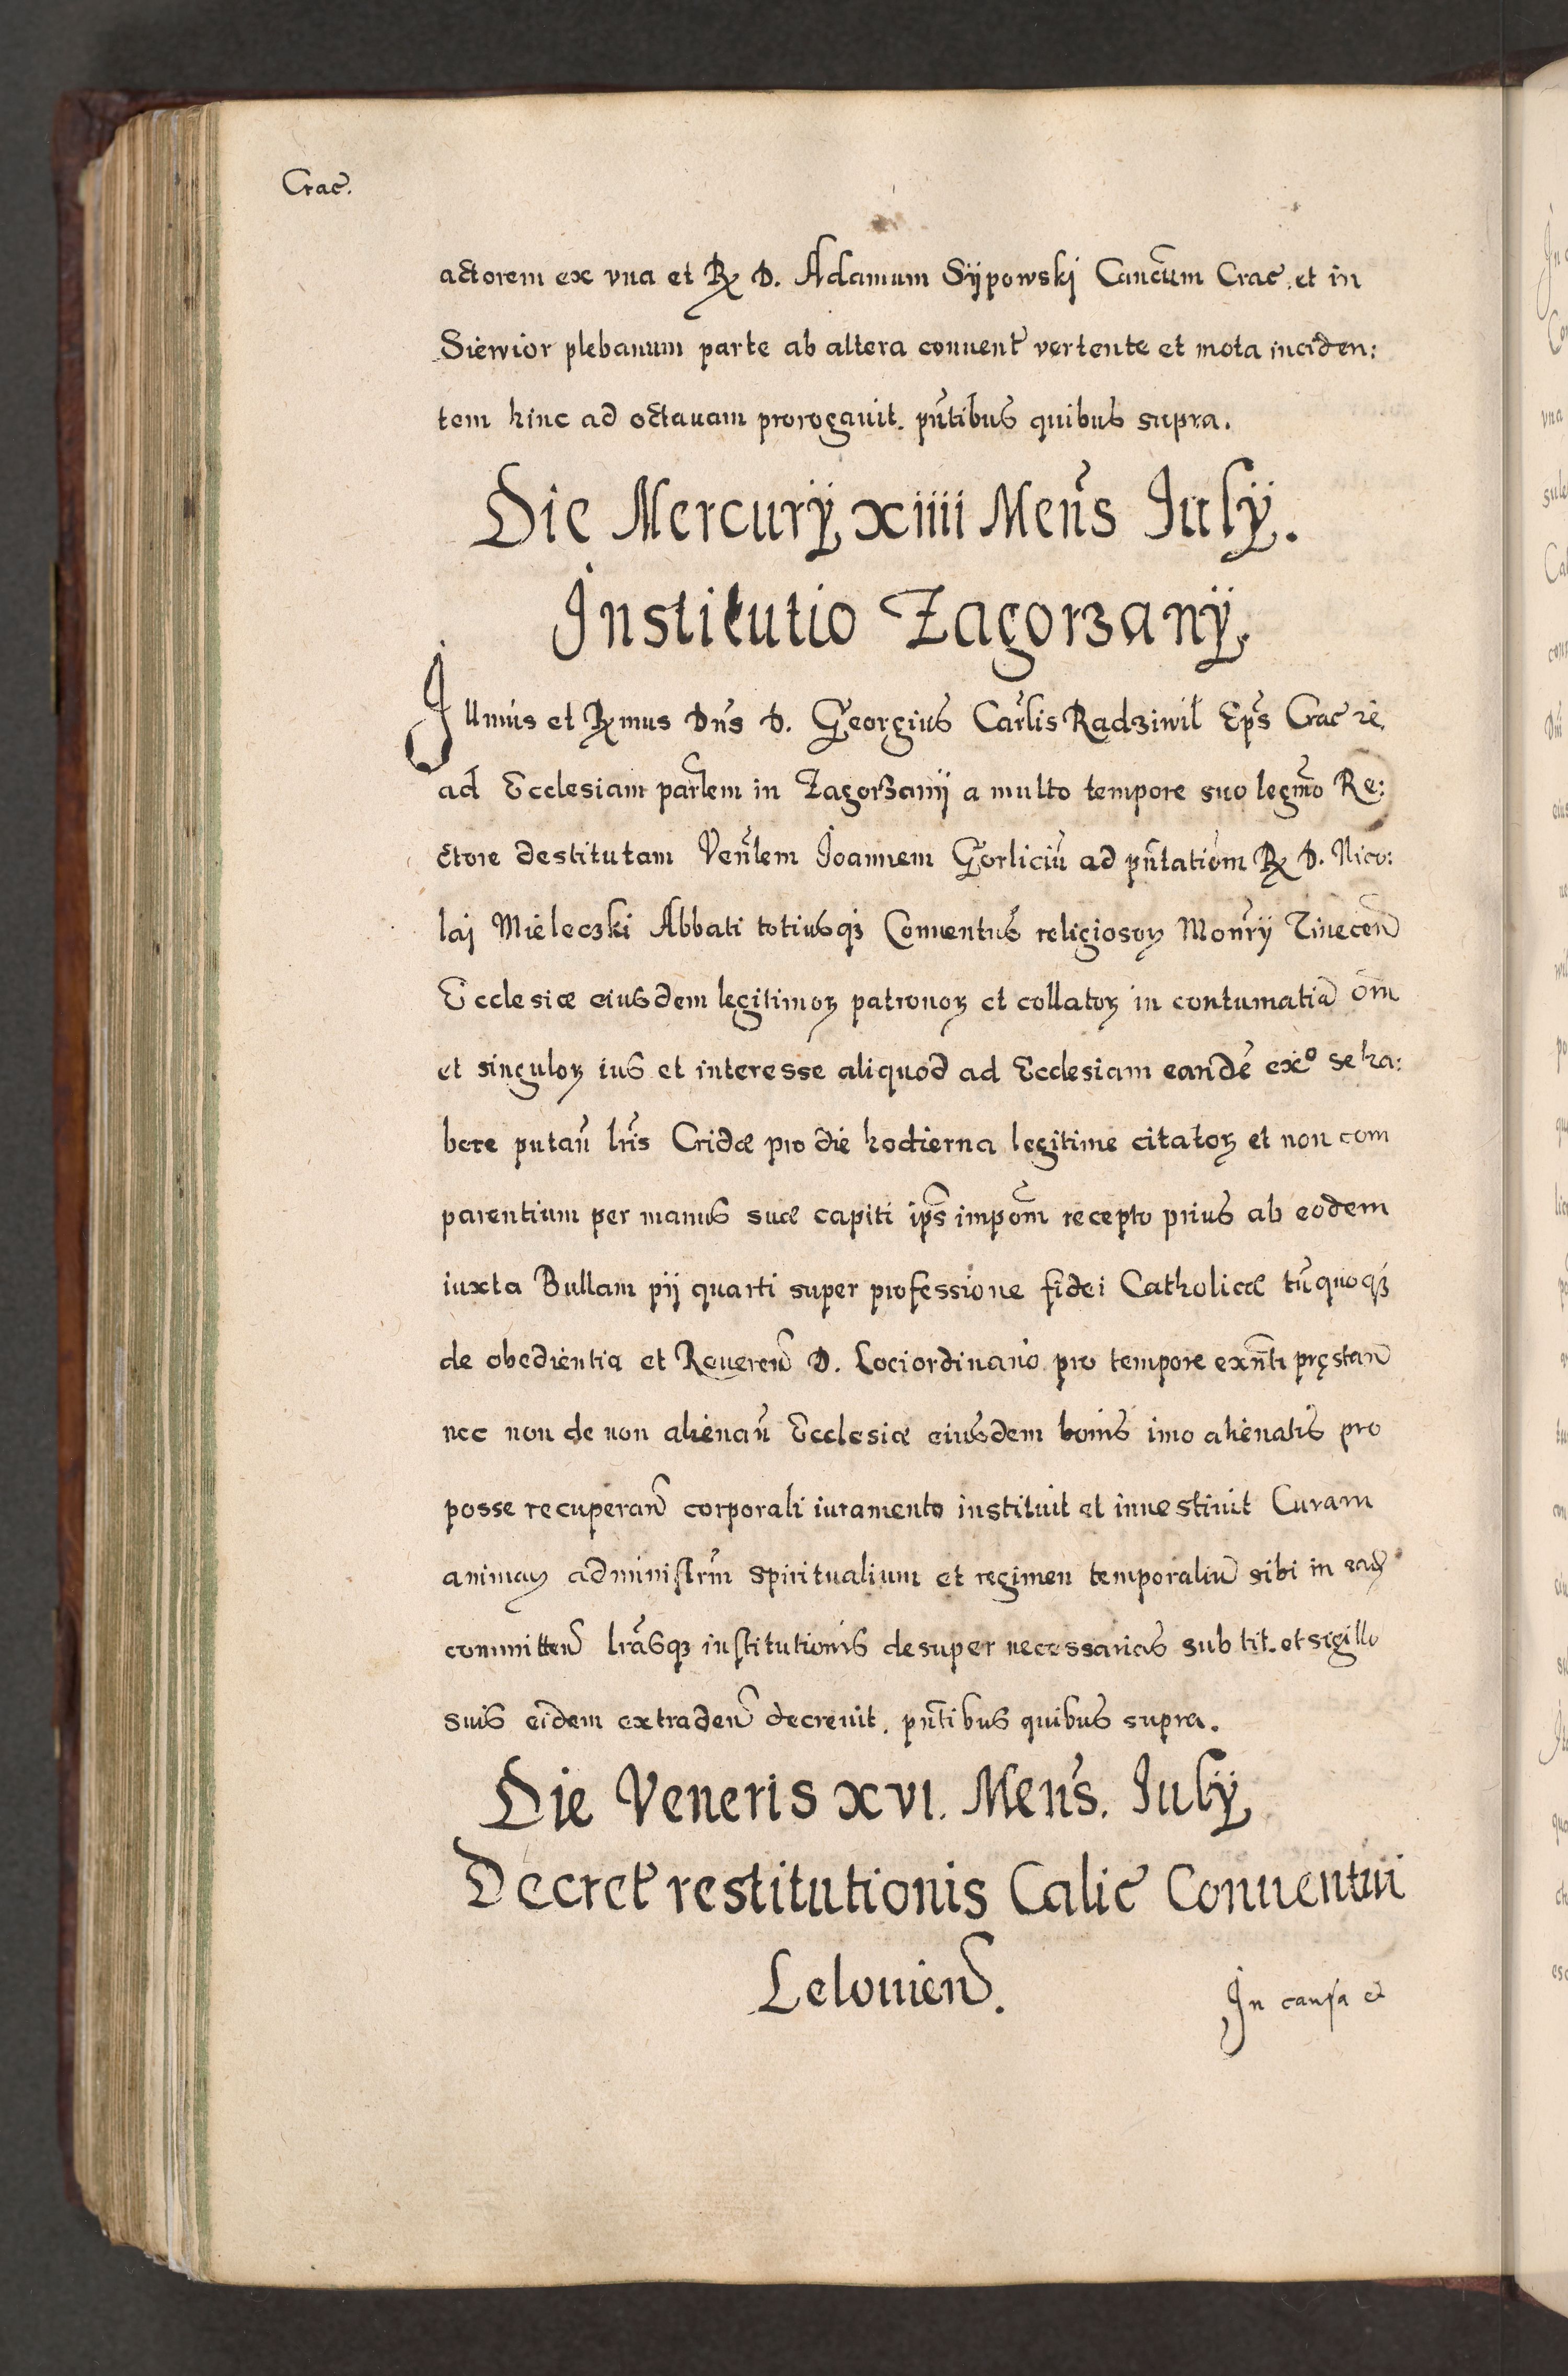 Crac̃.
actorem ex vna et R̃ D. Adamum Sÿpowskj Canc̃um Crac̃. et in
Siewior plebanum parte ab altera conuent̃ vertente et mota inciden:
tem hinc ad octauam prorogauit. pñtibus quibus supra.
Die Mercurÿ xiiii Meñs Julÿ.
Institutio Zagorzanÿ.
Illmus et R̃mus Dñs D. Georgius Car̃lis Radziwił Ep̃s Crac̃
ad Ecclesiam par̃lem in Zagorzanÿ a multo tempore suo legm̃o Re:
ctore destitutam Veñlem Joannem Gorliciũ ad pñtatiõm R̃ D. Nico:
laj Mieleczki Abbati totiusqꝫ Conuentus religiosoꝝ Moñrÿ Tineceñ
Ecclesiæ eiusdem legitimoꝝ patronoꝝ et collatoꝝ in contumatiã om̃
et singuloꝝ ius et interesse aliquod ad Ecclesiam eandẽ exº se ha:
bere putañ lr̃is Cridæ pro die hodierna legitime citatoꝝ et non com
parentium per manus suæ capiti ip̃s impom̃ recepto prius ab eodem
iuxta Bullam pij quarti super professione fidei Catholicæ tũ quoqꝫ
de obedientia et Reuereñ D. Lociordinario pro tempore exñti pręstañ
nec non de non alienañ Ecclesiæ eiusdem bonis imo alienatis pro
posse recuperañ corporali iuramento instituit et inuestiuit Curam
animaꝝ administrm̃ spiritualium et regimen temporaliũ sibi in eadẽ
committeñ lr̃asqꝫ institutionis desuper necessarias sub tit. et sigillo
suis eidem extradeñ decreuit. pñtibus quibus supra.
Die Veneris xvi. Meñs. Julÿ
Decret̃ restitutionis Calic̃ Conuentui
Lelouieñ.
In causa et